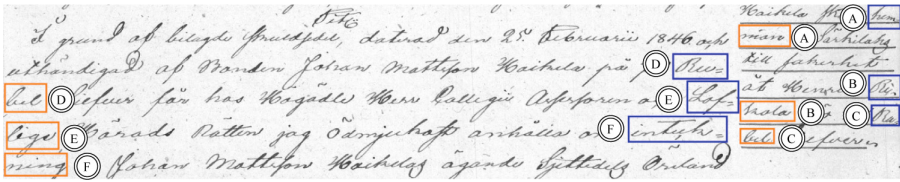 Tit.
I grund af bilagde skuldsedel, daterad den 25 Februarii 1846 och
uthändigad af Bonden Johan Mattsson Haikela på Ru-
bel Silfver får hos Högädle Herr Collegii Assessoren och Lof-
lige Härads Rätten jag ödmjukast anhålla om inteck-
ning Johan Mattsson Haikelas ägande Sjettedels Öresland
Haikela hem-
man Särkilaks
till säkerhet
åt Henric Ri-
skola Ru-
bel Silfver
A
A
B
B
C
C
D
D
E
E
F
F